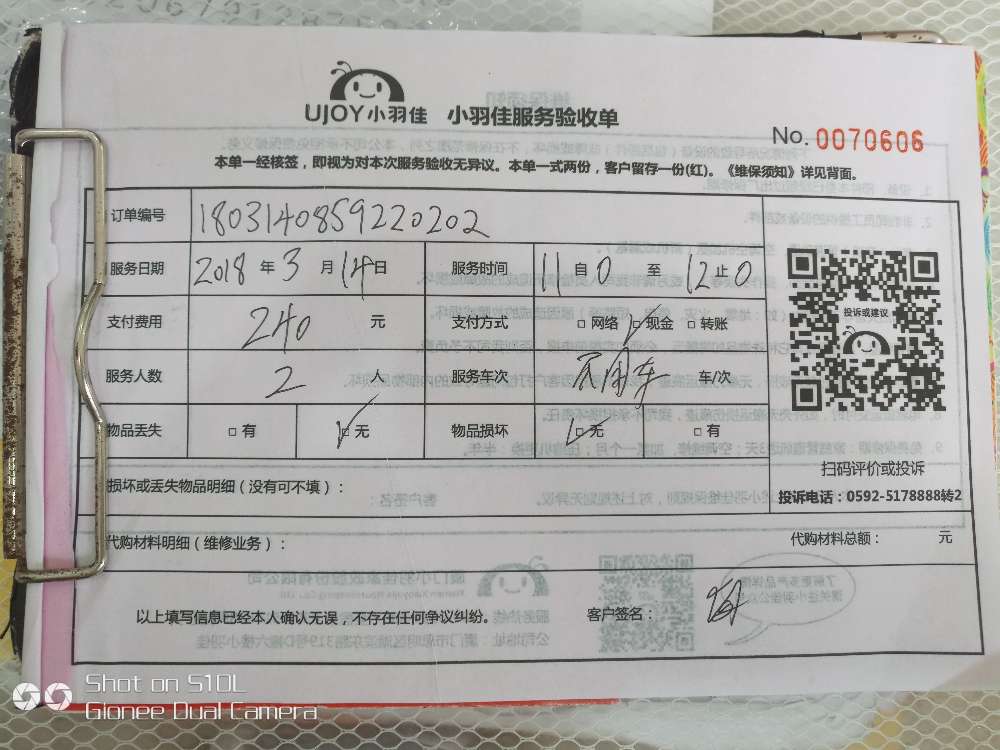 UJOY小羽佳 小羽佳服务验收单
No. 0070606
本单一经核签，即视为对本次服务验收无异议。本单一式两份，客户留存一份(红)。《维保须知》详见背面。
订单编号 1803140859220202
服务日期 2018 年 3 月 14 日 服务时间 11 自 0 至 12 止 0
支付费用 240 元 支付方式 □ 网络 □ 现金 □ 转账
投诉或建议
服务人数 2 人 服务车次 不用车 车/次
物品丢失 □ 有 □ 无 物品损坏 □ 无 □ 有
扫码评价或投诉
损坏或丢失物品明细（没有可不填）：
投诉电话：0592-5178888转2
代购材料明细（维修业务）：
代购材料总额： 元
以上填写信息已经本人确认无误，不存在任何争议纠纷。 客户签名：
Shot on S10L
Gionee Dual Camera